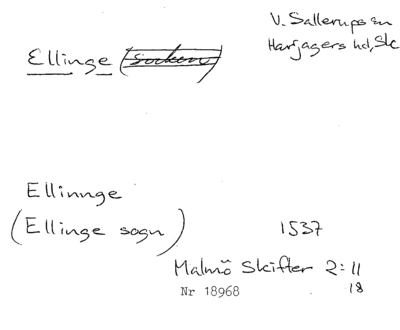 V. Sallerups sn
Harjagers hd, Sk
Ellinge (socken)
Ellinnge
(Ellinge sogn)
1537
Malmö Skifter 2:11
Nr 18968
18